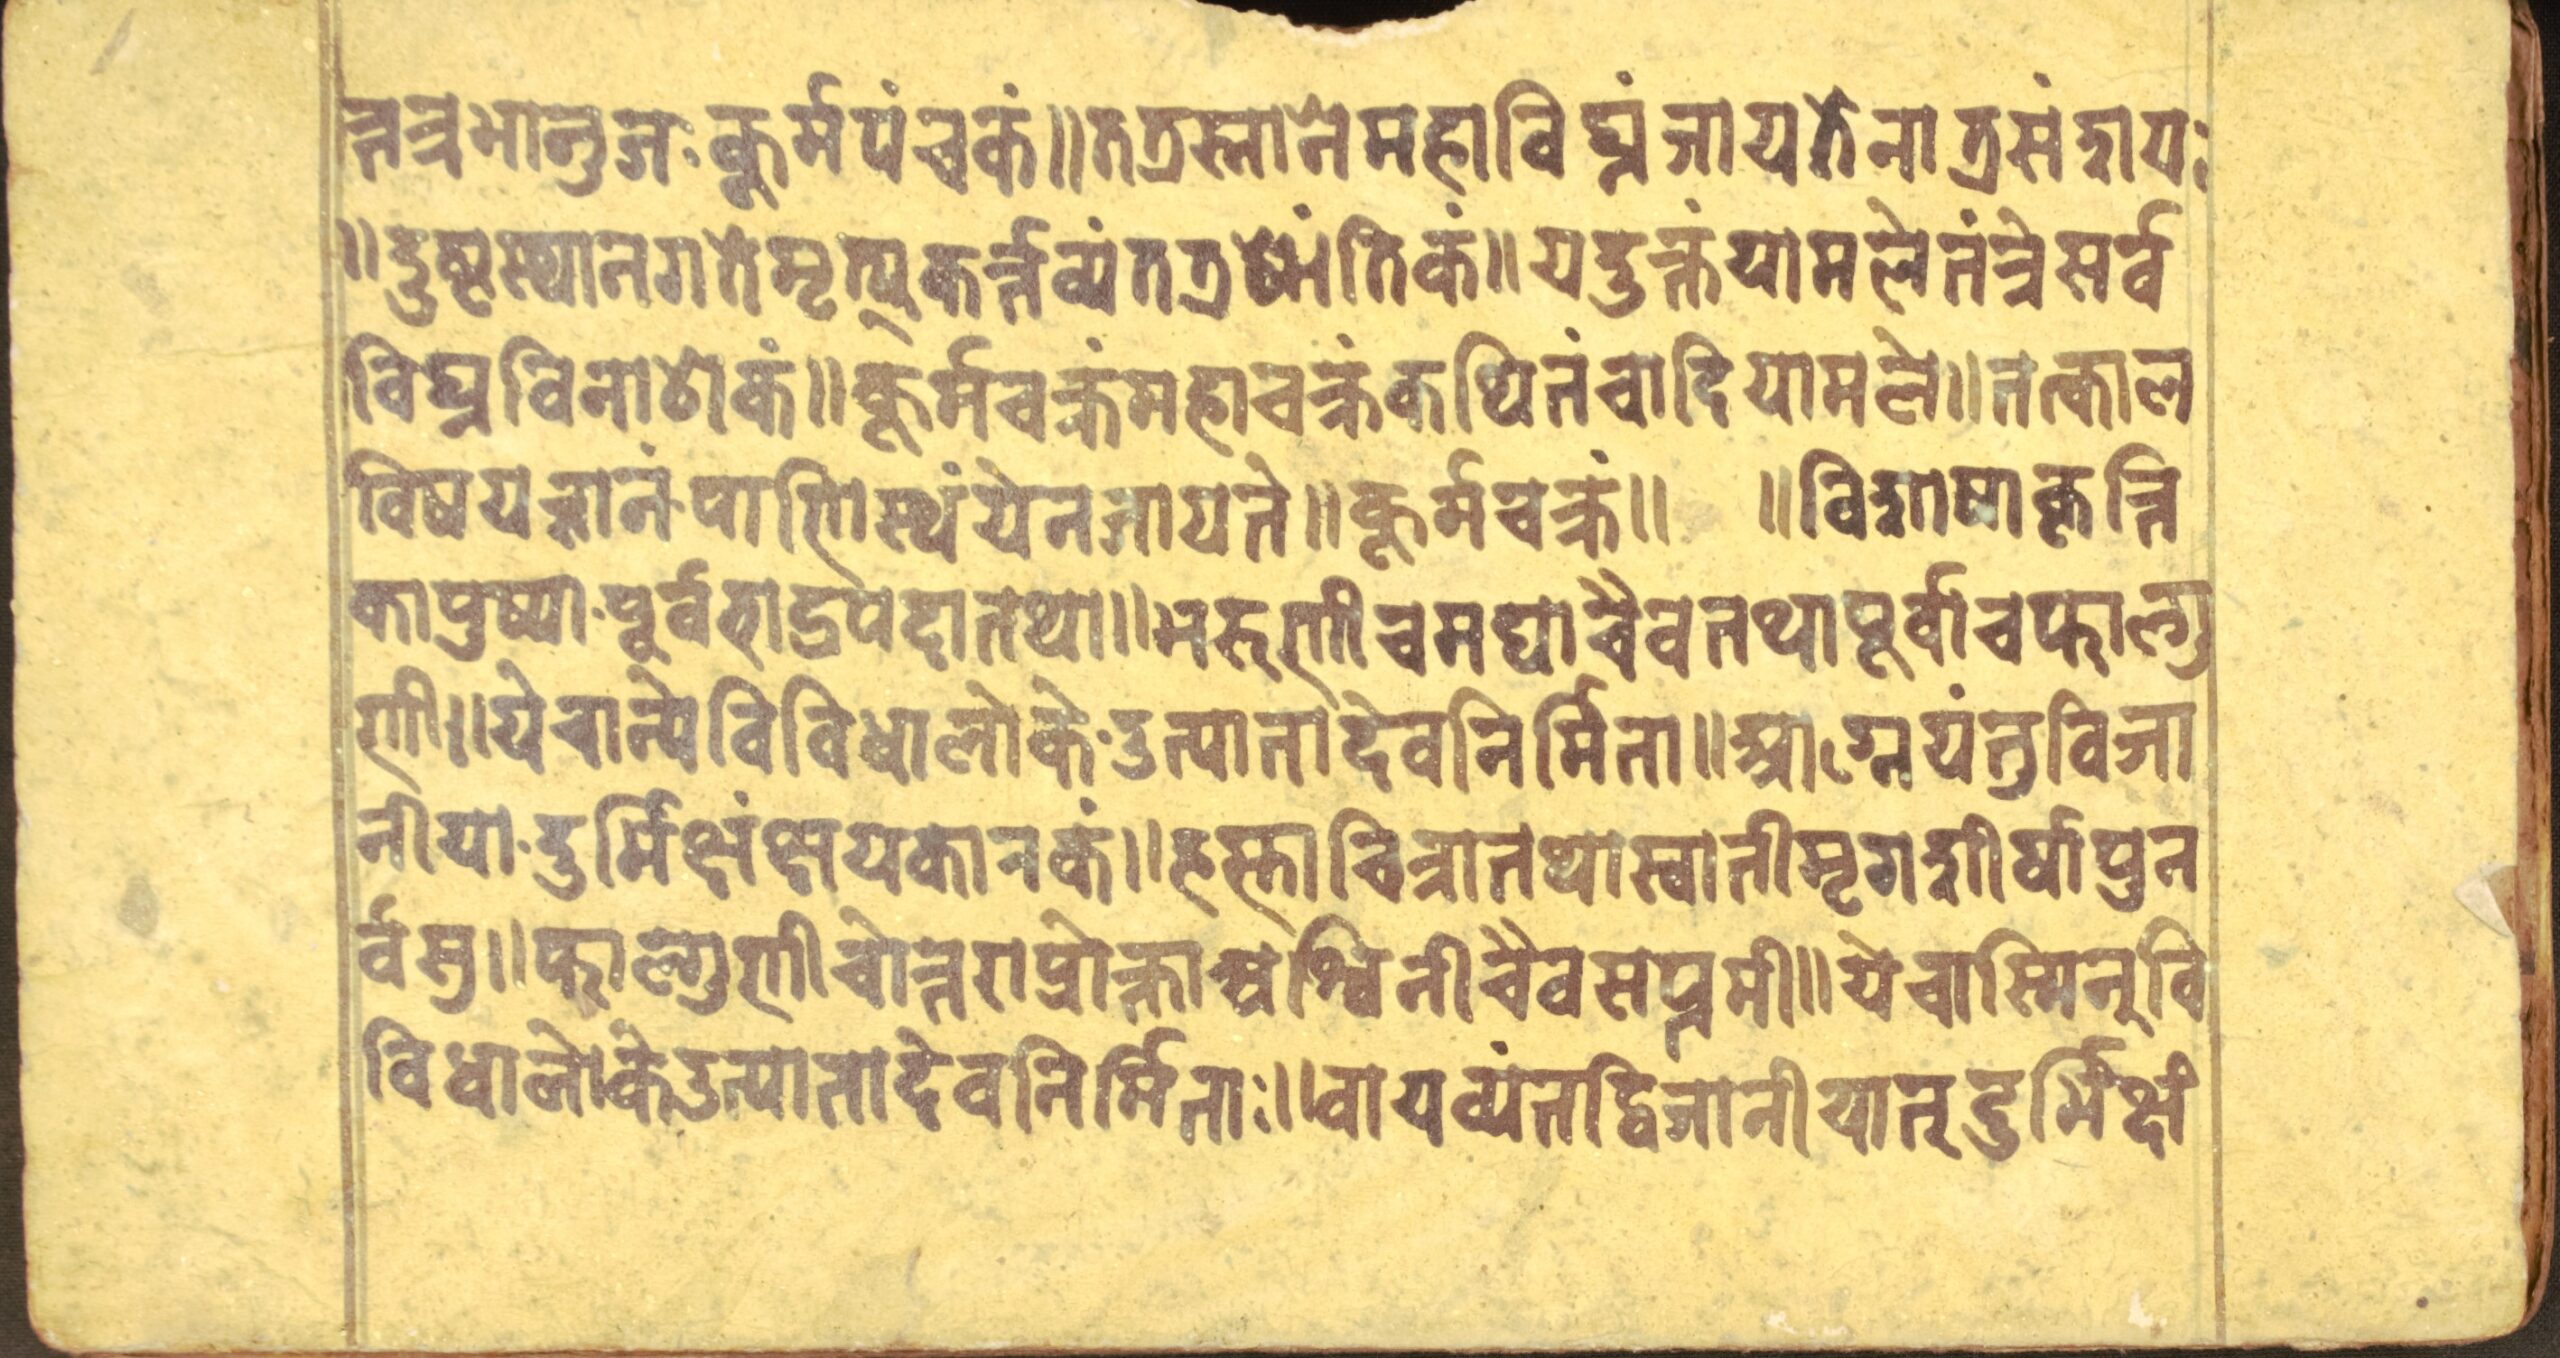 त्तत्रभानुजः कूर्मपंचकं॥तत्रस्थानेमहाविघ्नंजायतेनात्रसंशयः
॥दुष्टस्थानगतेमृत्युकर्त्तव्यंततत्रशांतिकं॥यदुक्तंयामलेतंत्रेसर्व
विघ्नविनाशकं॥कूर्मचक्रंमहाचक्रंकथितंचादियामले॥तत्काल
विषयज्ञानं पाणिस्थंयेनजायते॥कूर्मचक्रं॥ ॥विशाषाकृत्ति
कापुष्या पूर्वभाद्रपदातथा॥भरुणीचमघाचैवतथापूर्वाचफाल्गु
णी॥येचान्येविविधालोके उत्पातादेवनिर्मिता॥आग्नेयंतुविजा
नीया दुर्भिक्षंक्षयकारकं॥हस्ताचित्रातथास्वातीमृगशीर्षापुन
र्वसु॥फाल्गुणीचोत्तराप्रोक्ताअश्विनीचैवसप्तमी॥येचास्मिन्वि
विधालोकेउत्पातादेवनिर्मिताः॥वायव्यंतद्विजानीयात्दुर्भिक्षं